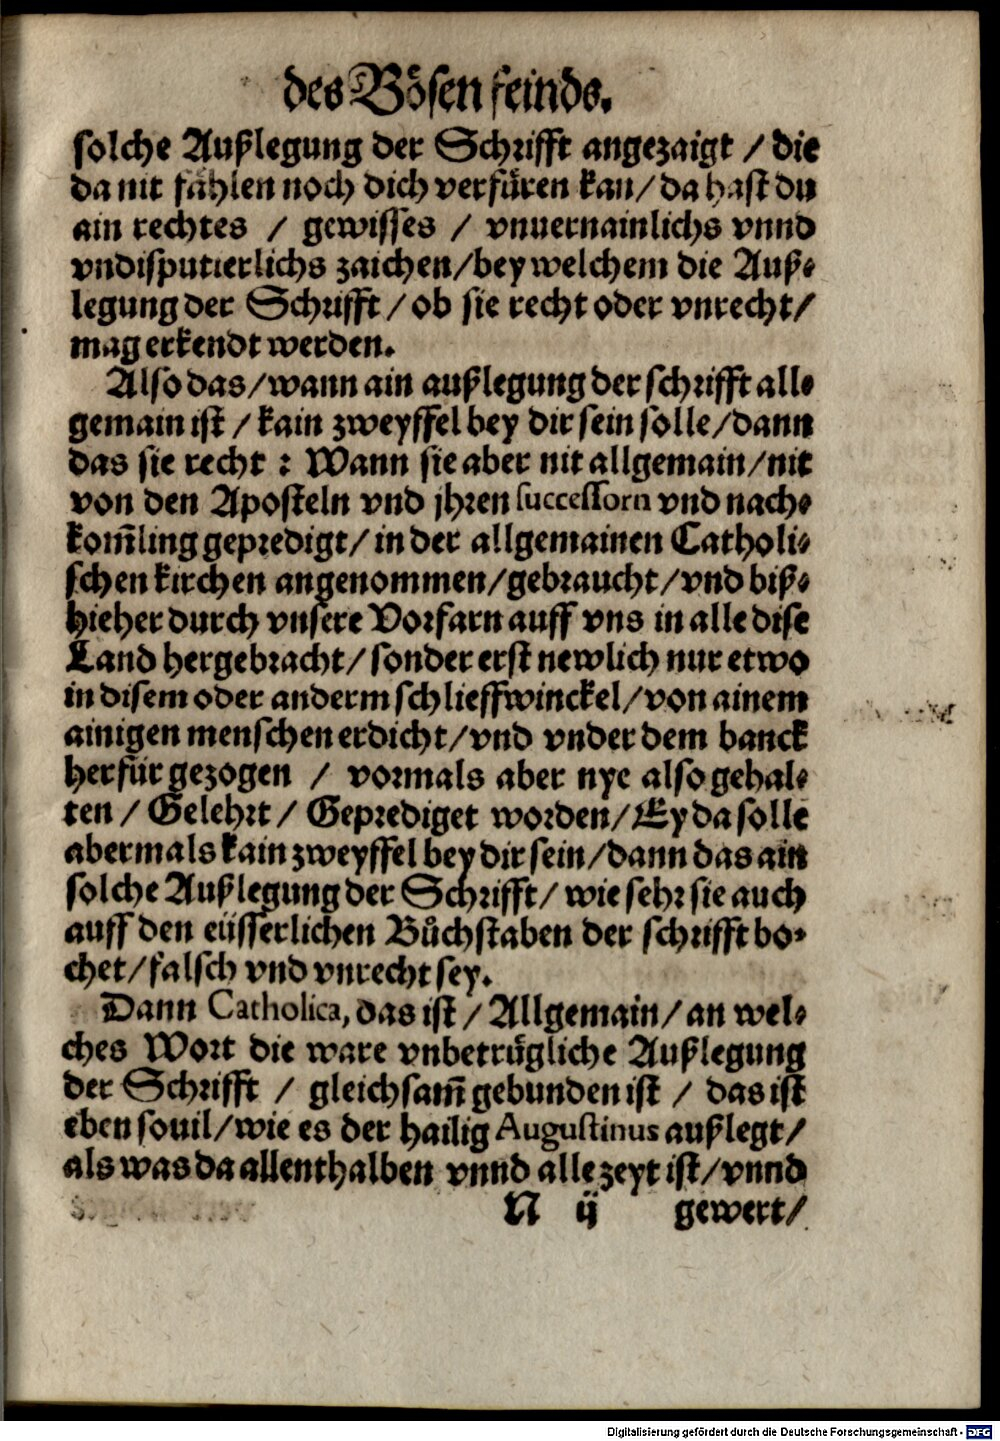 des Bösen feinds.
solche Außlegung der Schrifft angezaigt / die
da nit fählen noch dich verfüren kan / da hast du
ain rechtes / gewisses / vnuernainlichs vnnd
vndisputierlichs zaichen / bey welchem die Auß⸗
legung der Schrifft / ob sie recht oder vnrecht /
mag erkendt werden.
Also das / wann ain außlegung der schrifft all⸗
gemain ist / kain zweyffel bey dir sein solle / dann
das sie recht : Wann sie aber nit allgemain / nit
von den Aposteln vnd jhren successorn vnd nach⸗
kom̃ling gepredigt / in der allgemainen Catholi⸗
schen kirchen angenommen / gebraucht / vnd biß⸗
hieher durch vnsere Vorfarn auff vns in alle dise
Land hergebracht / sonder erst newlich nur etwo
in disem oder anderm schlieffwinckel / von ainem
ainigen menschen erdicht / vnd vnder dem banck
herfür gezogen / vormals aber nye also gehal⸗
ten / Gelehrt / Geprediget worden / Ey da solle
abermals kain zweyffel bey dir sein / dann das ain
solche Außlegung der Schrifft / wie sehr sie auch
auff den eüsserlichen Bůchstaben der schrifft bo⸗
chet / falsch vnd vnrecht sey.
Dann Catholica, das ist / Allgemain / an wel⸗
ches Wort die ware vnbetrügliche Außlegung
der Schrifft / gleichsam̃ gebunden ist / das ist
eben souil / wie es der hailig Augustinus außlegt /
als was da allenthalben vnnd alle zeyt ist / vnnd
N ij gewert /
Digitalisierung gefördert durch die Deutsche Forschungsgemeinschaft - DFG